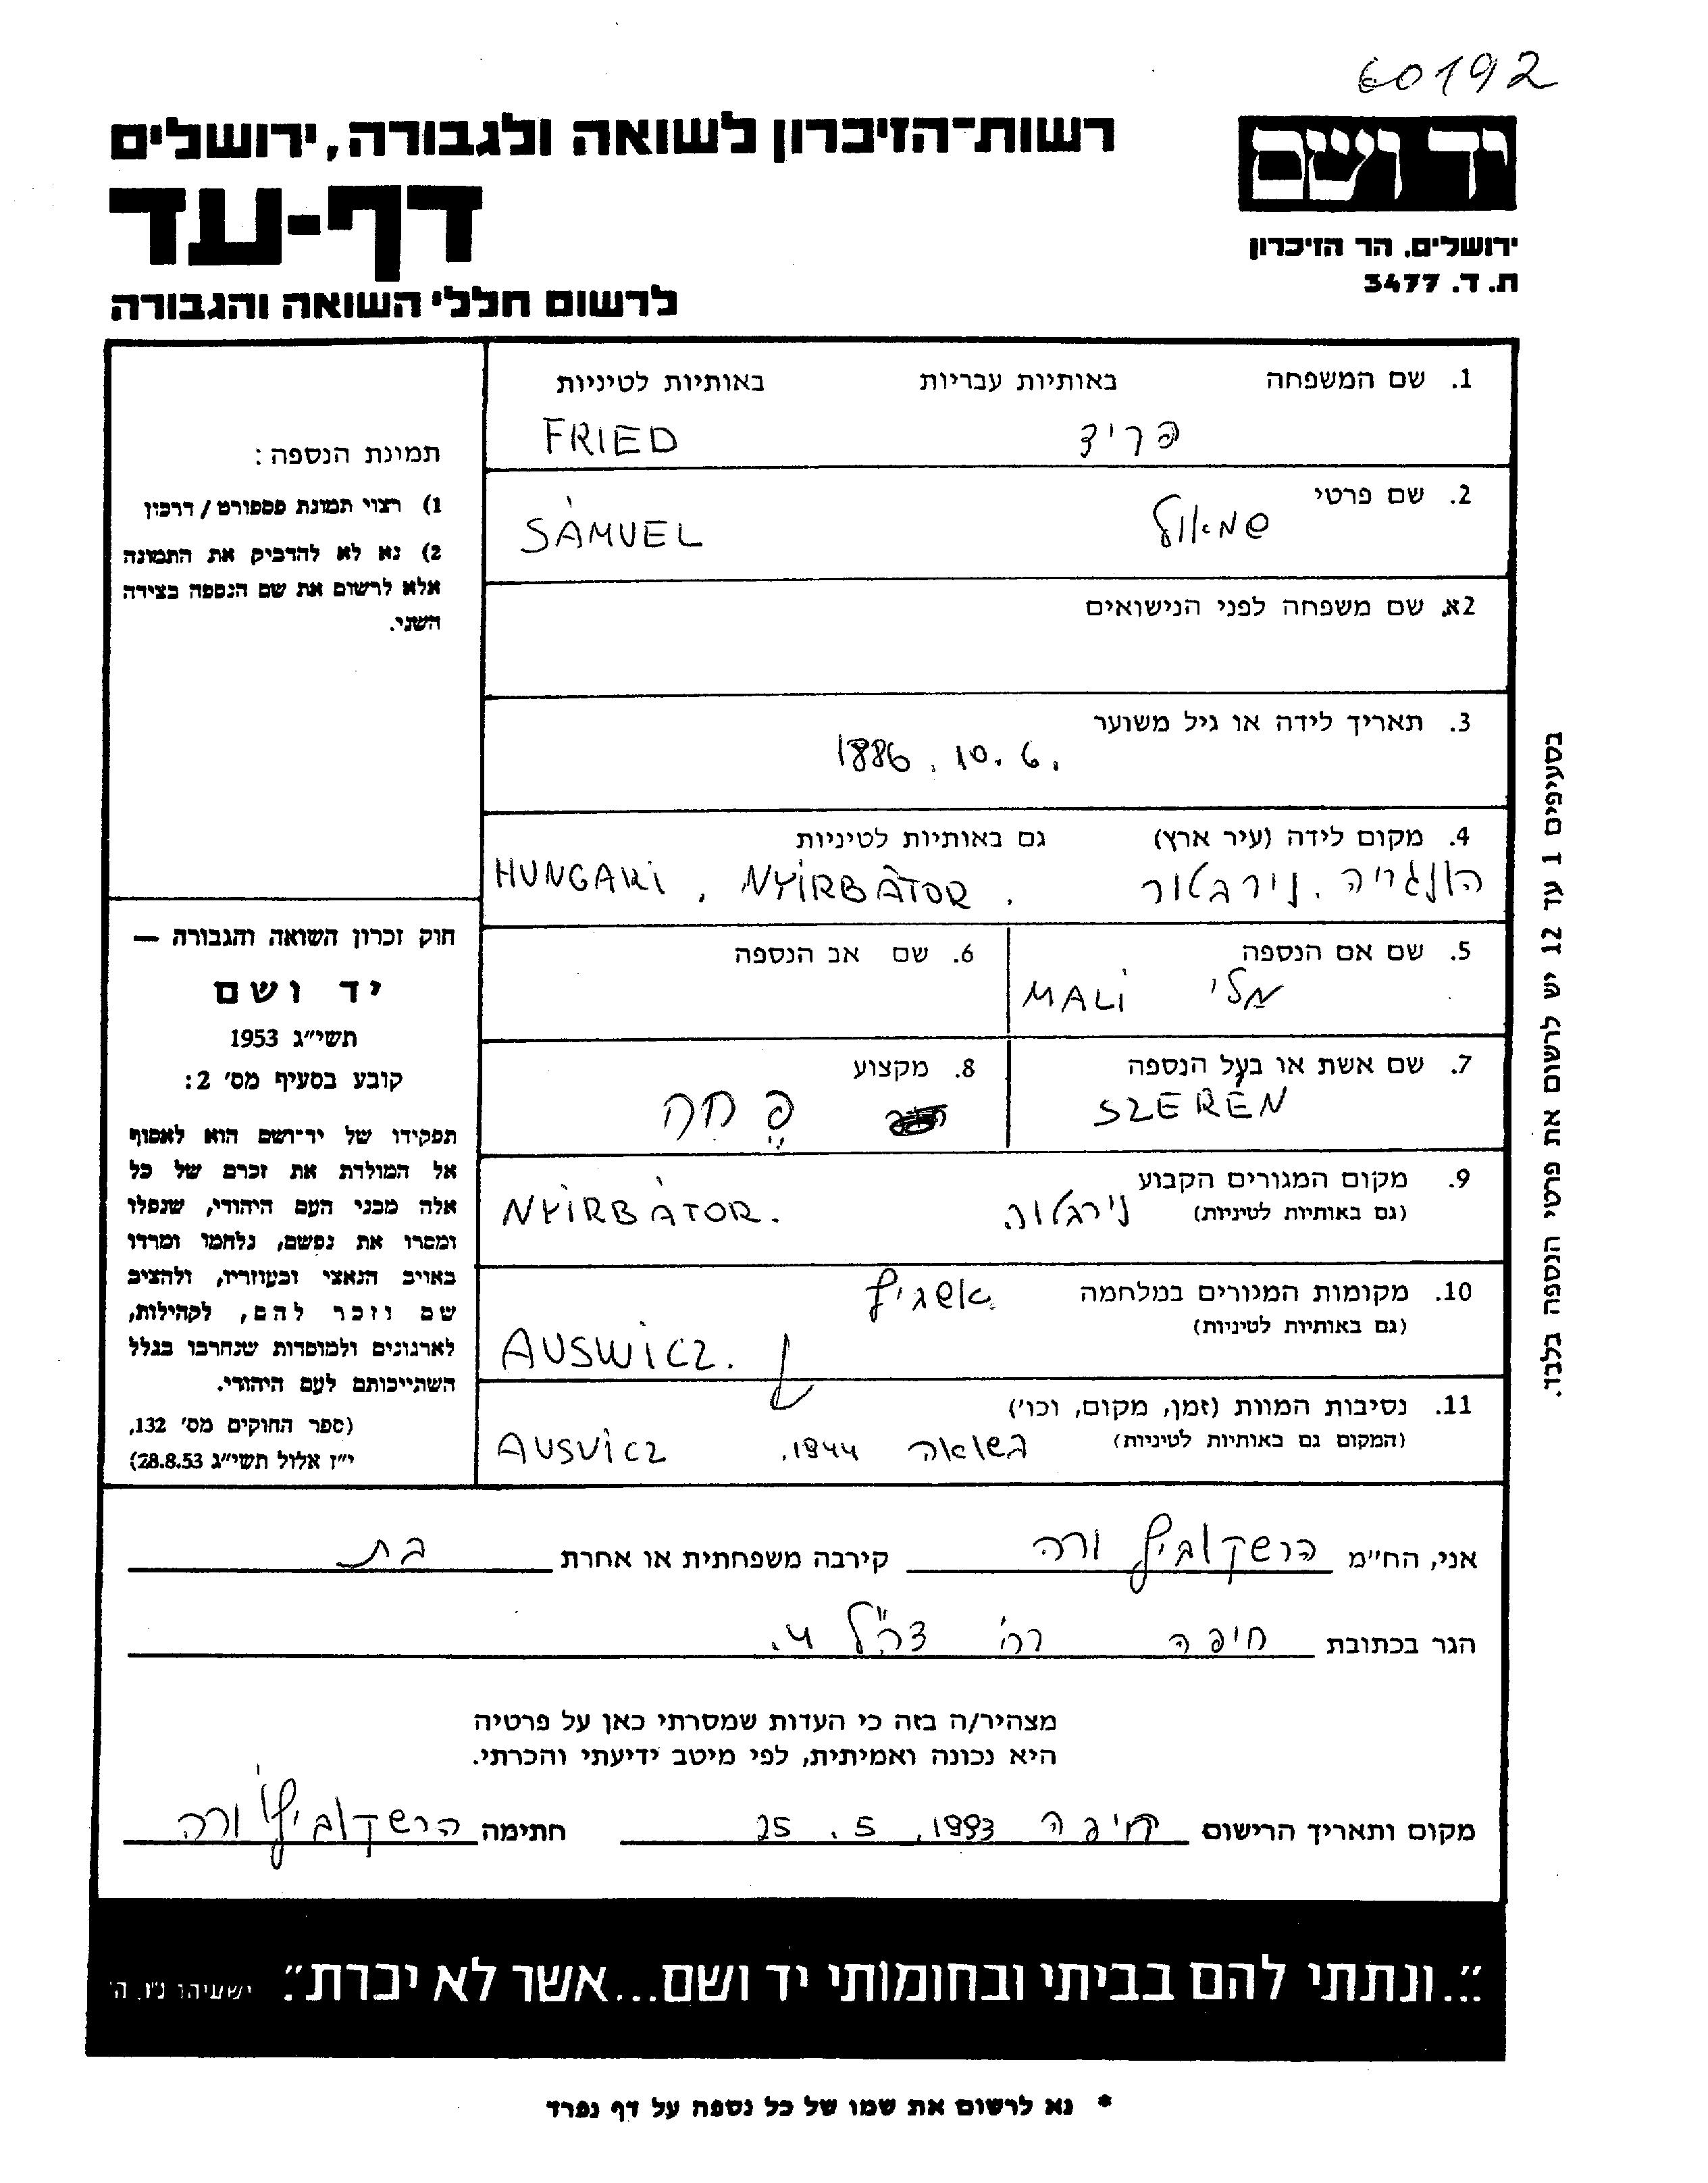 60192
יד ושם
ירושלים. הר הזיכרון
ת. ד. 3477
רשות־הזיכרון לשואה ולגבורה, ירושלים
דף-עד
לרשום חללי השואה והגבורה
1. שם המשפחה באותיות עבריות באותיות לטיניות
פריד FRIED
2. שם פרטי
שמאול SÁMUEL
2א. שם משפחה לפני הנישואים
3. תאריך לידה או גיל משוער
1886. 10. 6.
4. מקום לידה (עיר ארץ) גם באותיות לטיניות
הונגריה. נירבטור HUNGARI, NYIRBÁTOR.
5. שם אם הנספה
מלי MALI
6. שם אב הנספה
7. שם אשת או בעל הנספה
SZERÉN
8. מקצוע
פחח
9. מקום המגורים הקבוע
(גם באותיות לטיניות)
נירבטור NYIRBÁTOR.
10. מקומות המגורים במלחמה
(גם באותיות לטיניות)
AUSWICZ.
11. נסיבות המוות (זמן, מקום, וכו')
(המקום גם באותיות לטיניות)
בשואה 1944. AUSVICZ
תמונת הנספה:
1) רצוי תמונת פספורט / דרכון
2) נא לא להדביק את התמונה
אלא לרשום את שם הנספה בצידה
השני.
חוק זכרון השואה והגבורה —
יד ושם
תשי״ג 1953
קובע בסעיף מס׳ 2:
תפקידו של יד־ושם הוא לאסוף
אל המולדת את זכרם של כל
אלה מבני העם היהודי, שנפלו
ומסרו את נפשם, נלחמו ומרדו
באויב הנאצי ובעוזריו, ולהציב
שם וזכר להם, לקהילות,
לארגונים ולמוסדות שנחרבו בגלל
השתייכותם לעם היהודי.
(ספר החוקים מס׳ 132,
י״ז אלול תשי״ג 28.8.53)
בסעיפים 1 עד 12 יש לרשום את פרטי הנספה בלבד.
אני, הח״מ הרשקוביץ ורה קירבה משפחתית או אחרת בת
הגר בכתובת חיפה רח' צה"ל 4.
מצהיר/ה בזה כי העדות שמסרתי כאן על פרטיה
היא נכונה ואמיתית, לפי מיטב ידיעתי והכרתי.
מקום ותאריך הרישום חיפה 25. 5. 1993. חתימה הרשקוביץ ורה
״...ונתתי להם בביתי ובחומותי יד ושם...אשר לא יכרת״. ישעיהו נ״ו, ה׳
* נא לרשום את שמו של כל נספה על דף נפרד